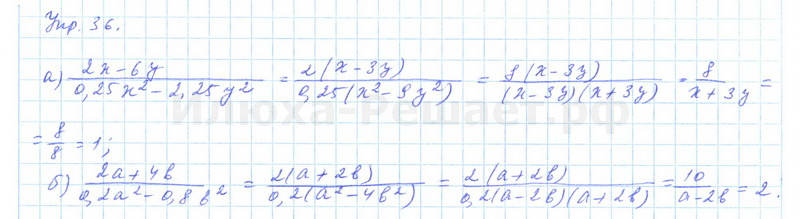 Упр. 36.
а) (2x-6y)/(0,25x²-2,25y²) = 2(x-3y)/(0,25(x²-9y²)) = 8(x-3y)/((x-3y)(x+3y)) = 8/(x+3y) =
= 8/8 = 1;
б) (2a+4b)/(0,2a²-0,8b²) = 2(a+2b)/(0,2(a²-4b²)) = 2(a+2b)/(0,2(a-2b)(a+2b)) = 10/(a-2b) = 2.
илюха-Решает.рф